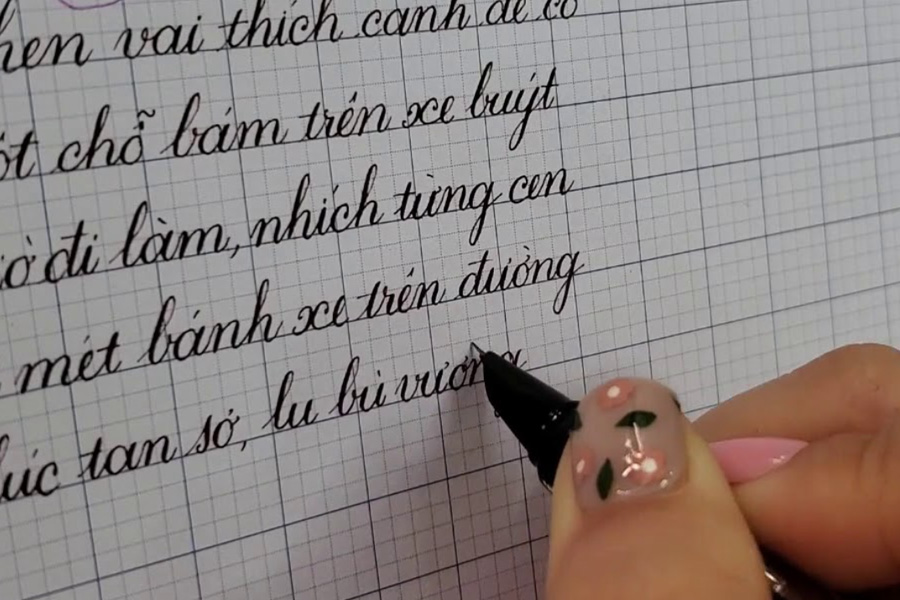 chen vai thích cánh để có
một chỗ bám trên xe buýt
giờ đi làm, nhích từng cen
mét bánh xe trên đường
lúc tan sở, lu bù vương